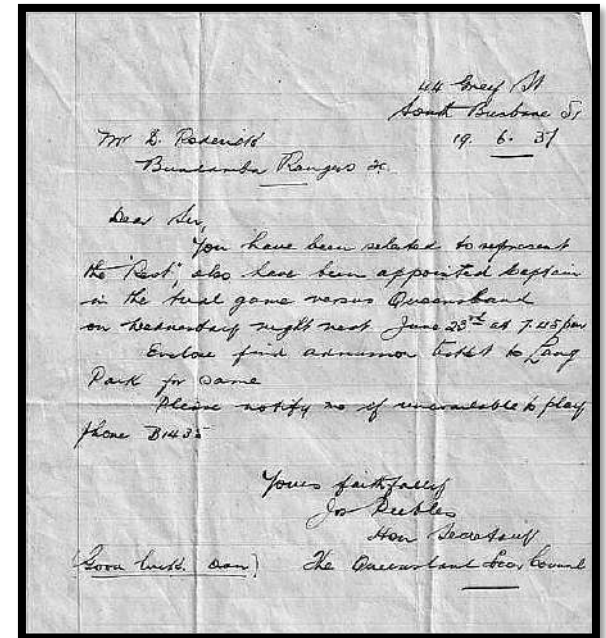 44 Grey St
South Brisbane S1
Mr D. Roderick
19. 6. 37
Bundamba Rangers Fc.
Dear Sir,
You have been selected to represent
the "Rest", also have been appointed Captain
in the trial game versus Queensland
on Wednesday night next June 23rd at 7.45 pm
Enclose find admission ticket to Lang
Park for same
Please notify me if unavailable to play
Phone B1435
Yours faithfully
Jos Peebles
Hon Secretary
(Good luck. Dan)
The Queensland Soccer Council